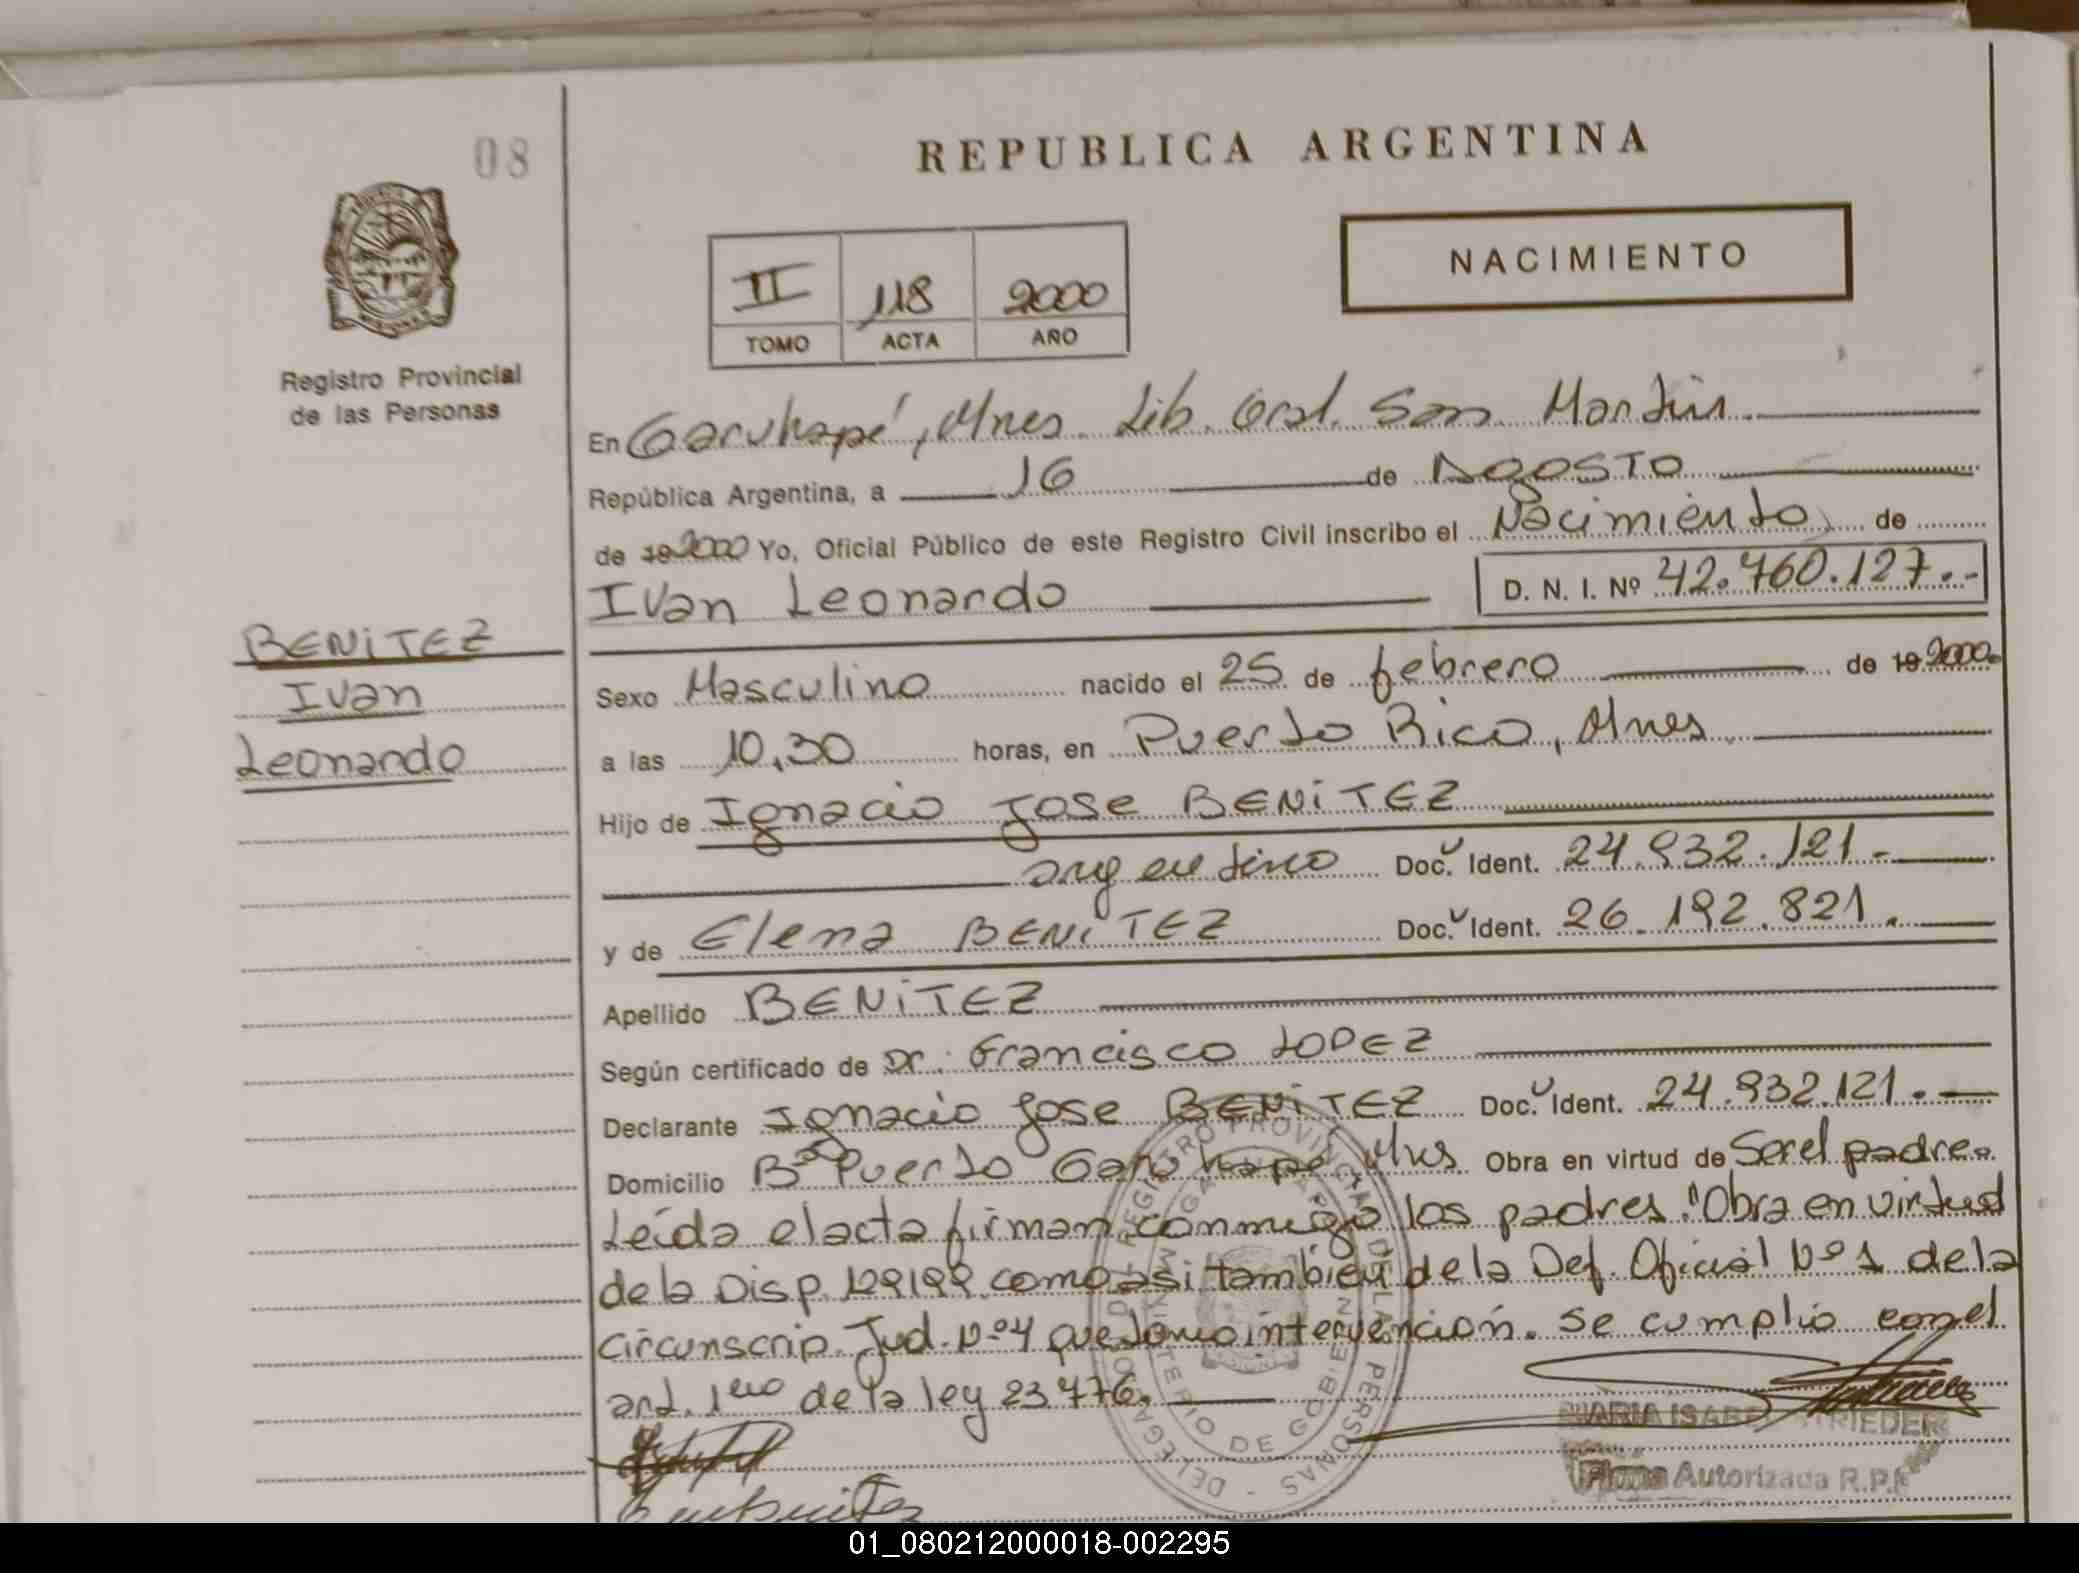 08
REPUBLICA ARGENTINA
NACIMIENTO
II 118 2000
TOMO ACTA AÑO
Registro Provincial
de las Personas
En Garuhapé, Mnes. Lib. Gral. San Martin
República Argentina, a 16 de Agosto
de 19 2000 Yo, Oficial Público de este Registro Civil inscribo el Nacimiento de
Ivan Leonardo D. N. I. Nº 42.760.127.-
BENITEZ
Ivan
Leonardo
Sexo Masculino nacido el 25 de febrero de 19 2000
a las 10,30 horas, en Puerto Rico, Mnes
Hijo de Ignacio Jose BENITEZ
argentino Doc. Ident. 24.932.121.-
y de Elena BENITEZ Doc. Ident. 26.192.821.
Apellido BENITEZ
Según certificado de Dr. Francisco LOPEZ
Declarante Ignacio Jose BENITEZ Doc. Ident. 24.932.121.-
Domicilio Bº Puerto Garuhapé, Mns Obra en virtud de Ser el padre.
Leída el acta firman conmigo los padres. "Obra en virtud
de la Disp. 129199 como asi también de la Def. Oficial Nº 1 de la
circunscrip. Jud. Nº 4 que tomo intervención. Se cumplio con el
art. 1ero de la ley 23776.
DELEGACION DEL REGISTRO PROVINCIAL DE LAS PERSONAS
MINISTERIO DE GOBIERNO
MARIA ISABEL STRIEDER
Firma Autorizada R.P.P.
01_080212000018-002295